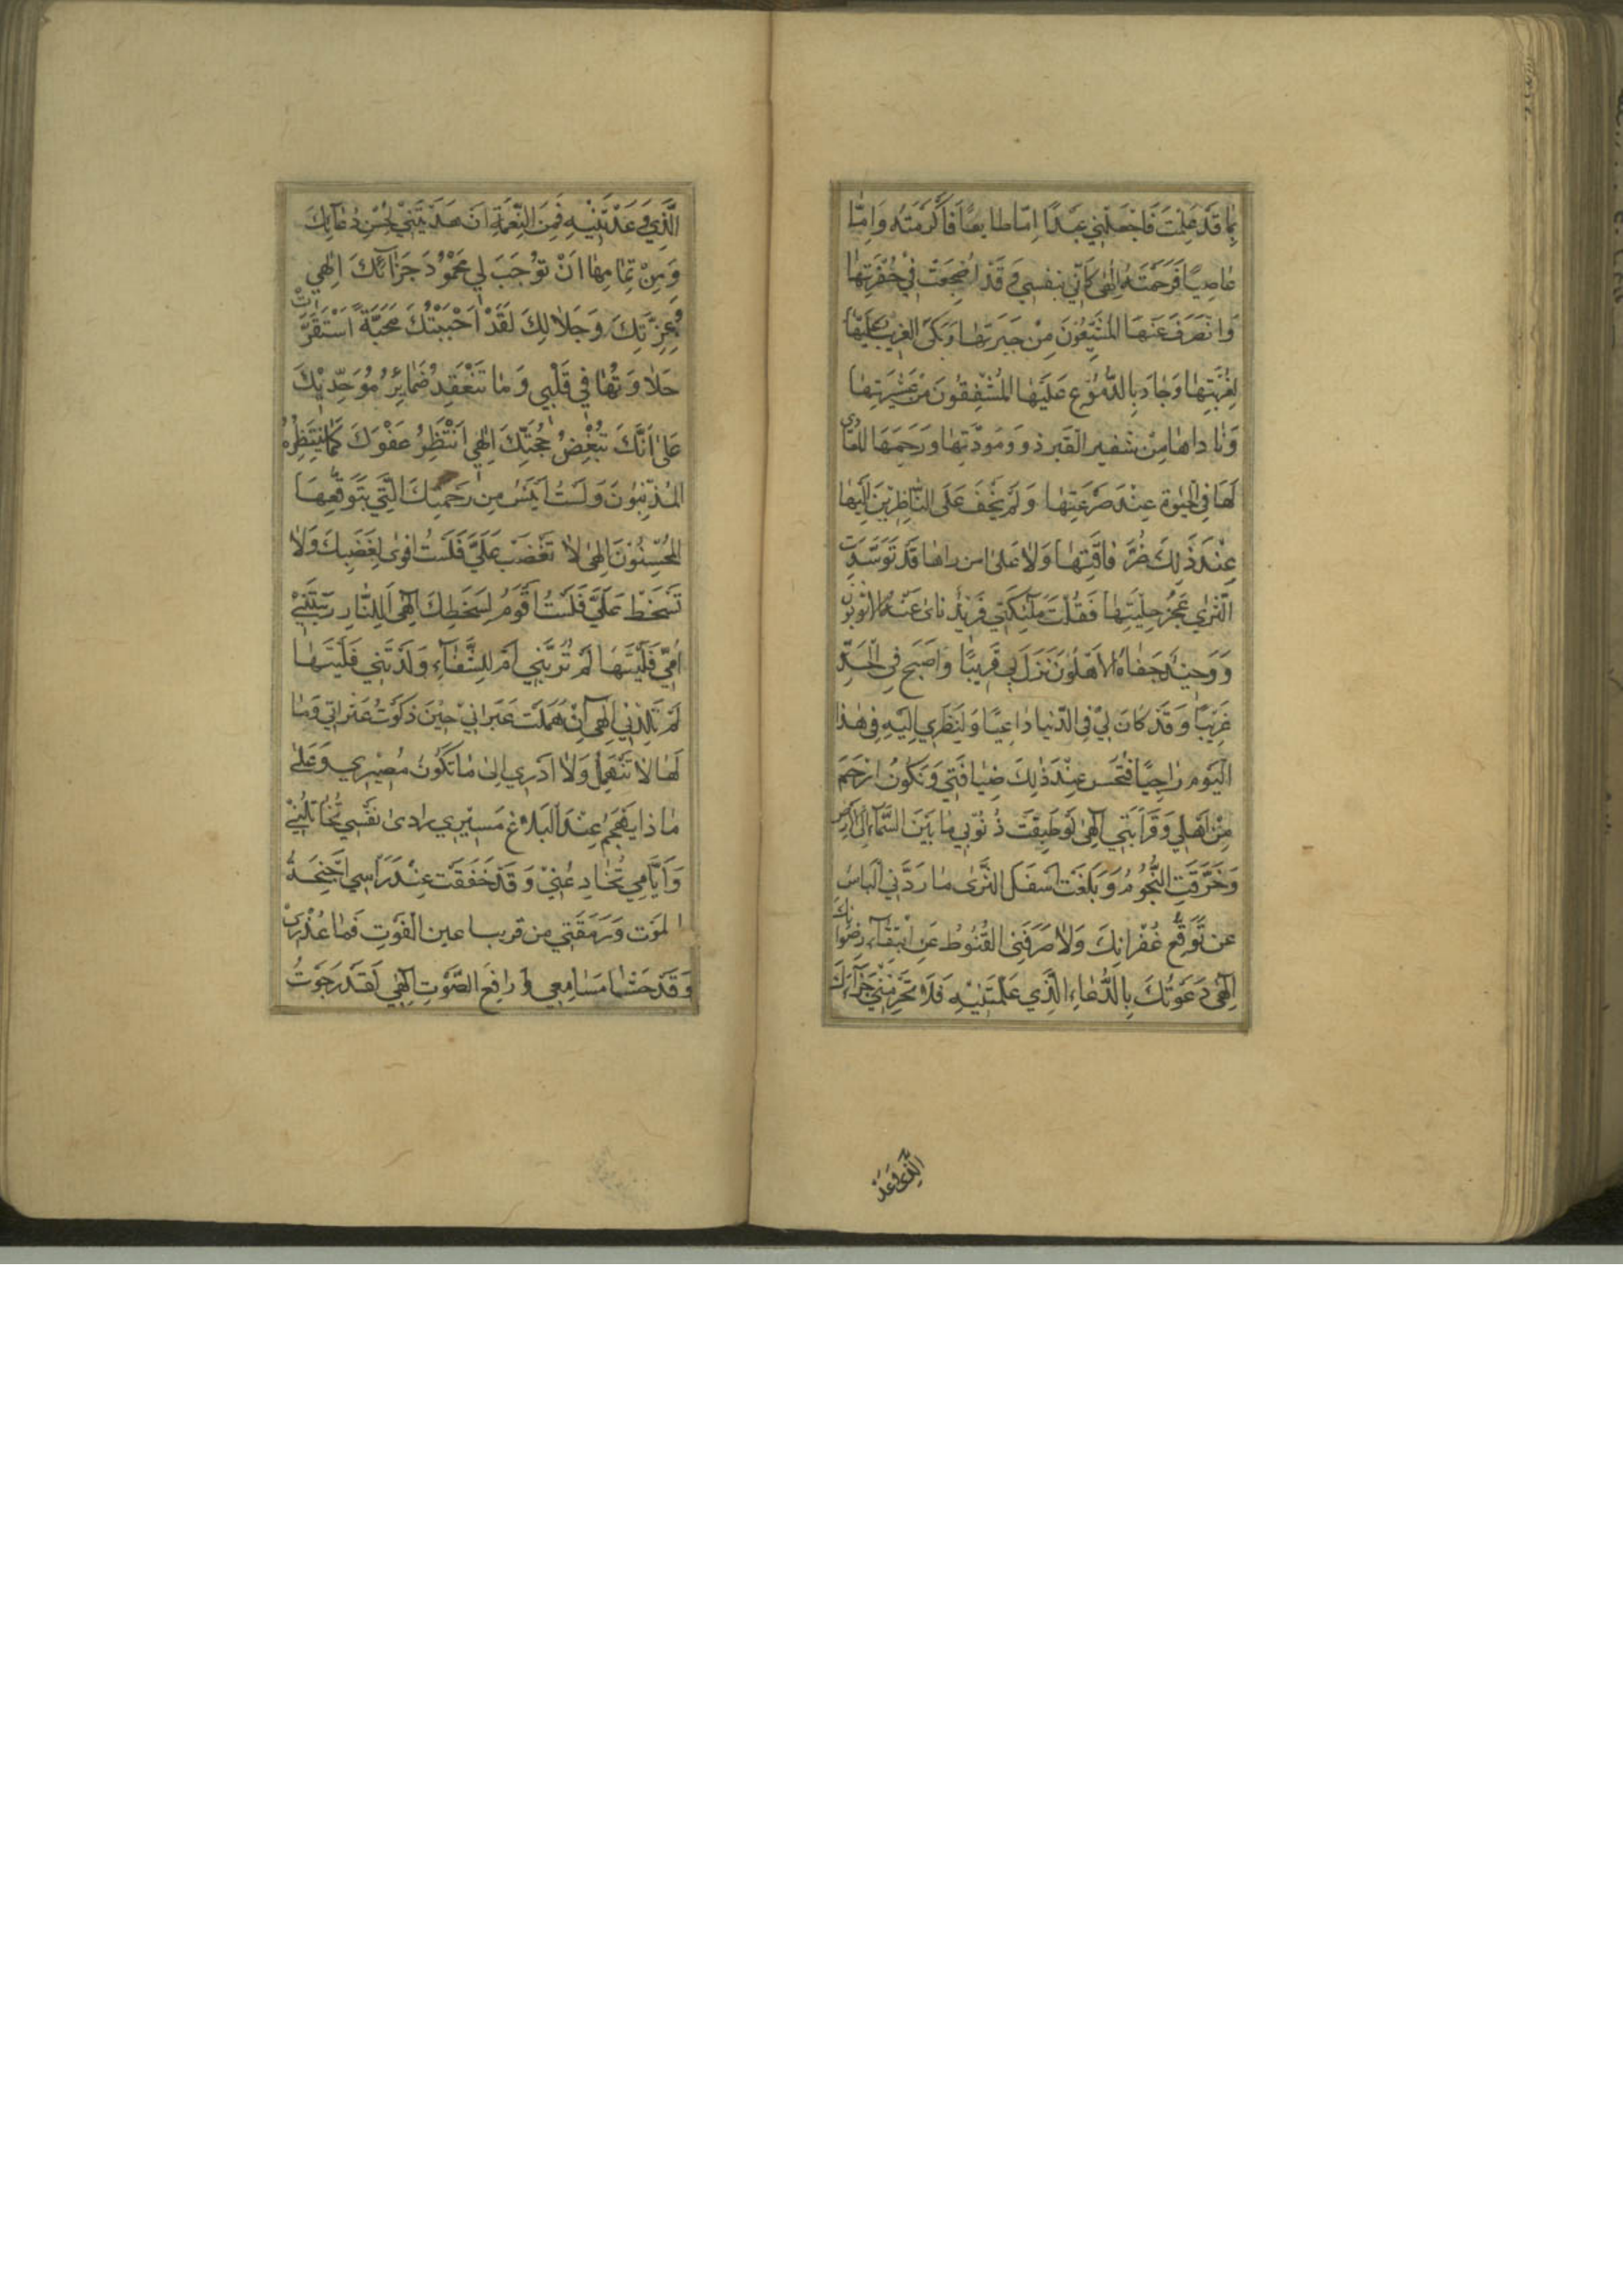 بِمَا قَدْ عَلِمْتَ فَاجْعَلْنِي عَبْدًا اِمّا طايِعًا فَاَكْرَمْتَهُ وَاِمّا
عاصِيًا فَرَحِمْتَهُ اِلٰهي كَاَنّي بِنَفْسي وَقَدْ اُضْجِعَتْ في حُفْرَتِها
وَانْصَرَفَ عَنْهَا الْمُشَيِّعُونَ مِنْ جيرَتِها وَبَكَى الْغَريبُ عَلَيْها
لِغُرْبَتِها وَجادَ بِالدُّمُوعِ عَلَيْها الْمُشْفِقُونَ مِنْ عَشيرَتِها
وَناداها مِنْ شَفيرِ الْقَبْرِ ذَوُو مَوَدَّتِها وَرَحِمَهَا الْمُعادي
لَها فِي الْحَيٰوةِ عِنْدَ صَرْعَتِها وَلَمْ يَخْفَ عَلَى النّاظِرينَ اِلَيْها
عِنْدَ ذٰلِكَ ضُرُّ فاقَتِها وَلا عَلىٰ من راها قَدْ تَوَسَّدَتِ
الثَّرٰي عَجْزُ حيلَتِها فَقُلْتَ مَلٰئِكَتي فَريدٌ نَاىٰ عَنْهُ الْاَقْرَبُونَ
وَوَحيدٌ جَفاهُ الْاَهْلُونَ نَزَلَ بي قَريبًا وَاَصْبَحَ فِي اللَّحْدِ
غَريبًا وَقَدْ كانَ لي فِي الدُّنْيا داعِيًا وَلِنَظَري اِلَيْهِ في هٰذَا
الْيَوْمِ راجِيًا فَتُحْسِن عِنْدَ ذٰلِكَ ضِيافَتي وَتَكُونُ اَرْحَمَ
مِنْ اَهْلي وَقَرابَتي اِلٰهي لَوْ طَبَقَتْ ذُنُوبي ما بَيْنَ السَّمآءِ اِلَى الْاَرْضِ
وَخَرَقَتِ النُّجُومَ وَبَلَغَتْ اَسْفَلَ الثَّرىٰ ما رَدَّنِي الْيَاْسُ
عن تَوَقُّعِ غُفْرانِكَ وَلا صَرَفَنِي الْقُنُوطُ عَنِ ابْتِغآءِ رِضْوانِكَ
اِلٰهي دَعَوْتُكَ بِالدُّعاءِ الَّذي عَلَّمْتَنيهِ فَلا تَحْرِمْني جَزآءَكَ
الَّذي وَعَدْتَنيهِ فَمِنَ النِّعْمَةِ اَنْ هَدَيْتَني لِحُسْنِ دُعآئِكَ
وَمِنْ تَمامِها اَنْ تُوْجِبَ لي مَحْمُودَ جَزائِكَ اِلٰهي
وَعِزَّتِكَ وَجَلالِكَ لَقَدْ اَحْبَبْتُكَ مَحَبَّةً اسْتَقَرَّتْ
حَلاوَتُها في قَلْبي وَما تَنْعَقِدُ ضَمائِرُ مُوَحِّديكَ
عَلىٰ اَنَّكَ تُبْغِضُ مُحِبّيكَ اِلٰهي اَنْتَظِرُ عَفْوَكَ كَما يَنْتَظِرُهُ
الْمُذْنِبُونَ وَلَسْتُ اَيْئَسُ مِنْ رَحْمَتِكَ الَّتي يَتَوَقَّعُهَا
الْمُحْسِنُونَ اِلٰهي لا تَغْضَبْ عَلَيَّ فَلَسْتُ اَقْوىٰ لِغَضَبِكَ وَلا
تَسْخَطْ عَلَيَّ فَلَسْتُ اَقُومُ لِسَخَطِكَ اِلٰهي اَلِلنّارِ رَبَّتْني
اُمّي فَلَيْتَها لَمْ تُرَبِّني اَمْ لِلشَّقآءِ وَلَدَتْني فَلَيْتَها
لَمْ تَلِدْني اِلٰهي اِنْ هَمَلَتْ عَبَراتي حينَ ذَكَرْتُ عَثَراتي وَما
لَها لا تَنْهَمِلُ وَلا اَدْري اِلىٰ ما تَكُونُ مَصيري وَعَلىٰ
ماذا يَهْجُمُ عِنْدَ الْبَلاغِ مَسيري وَاَرىٰ نَفْسي تُخاتِلُني
وَاَيّامي تُخادِعُني وَقَدْ خَفَقَتْ عِنْدَ رَاْسي اَجْنِحَةُ
الْمَوْت وَرَمَقَتْني من قريب اعين الْفَوْتِ فَما عُذْري
وَقَدْ حَشا مَسامِعي رافِعُ الصَّوْتِ اِلٰهي لَقَدْ رَجَوْتُ
الَّذي وَعَدْ